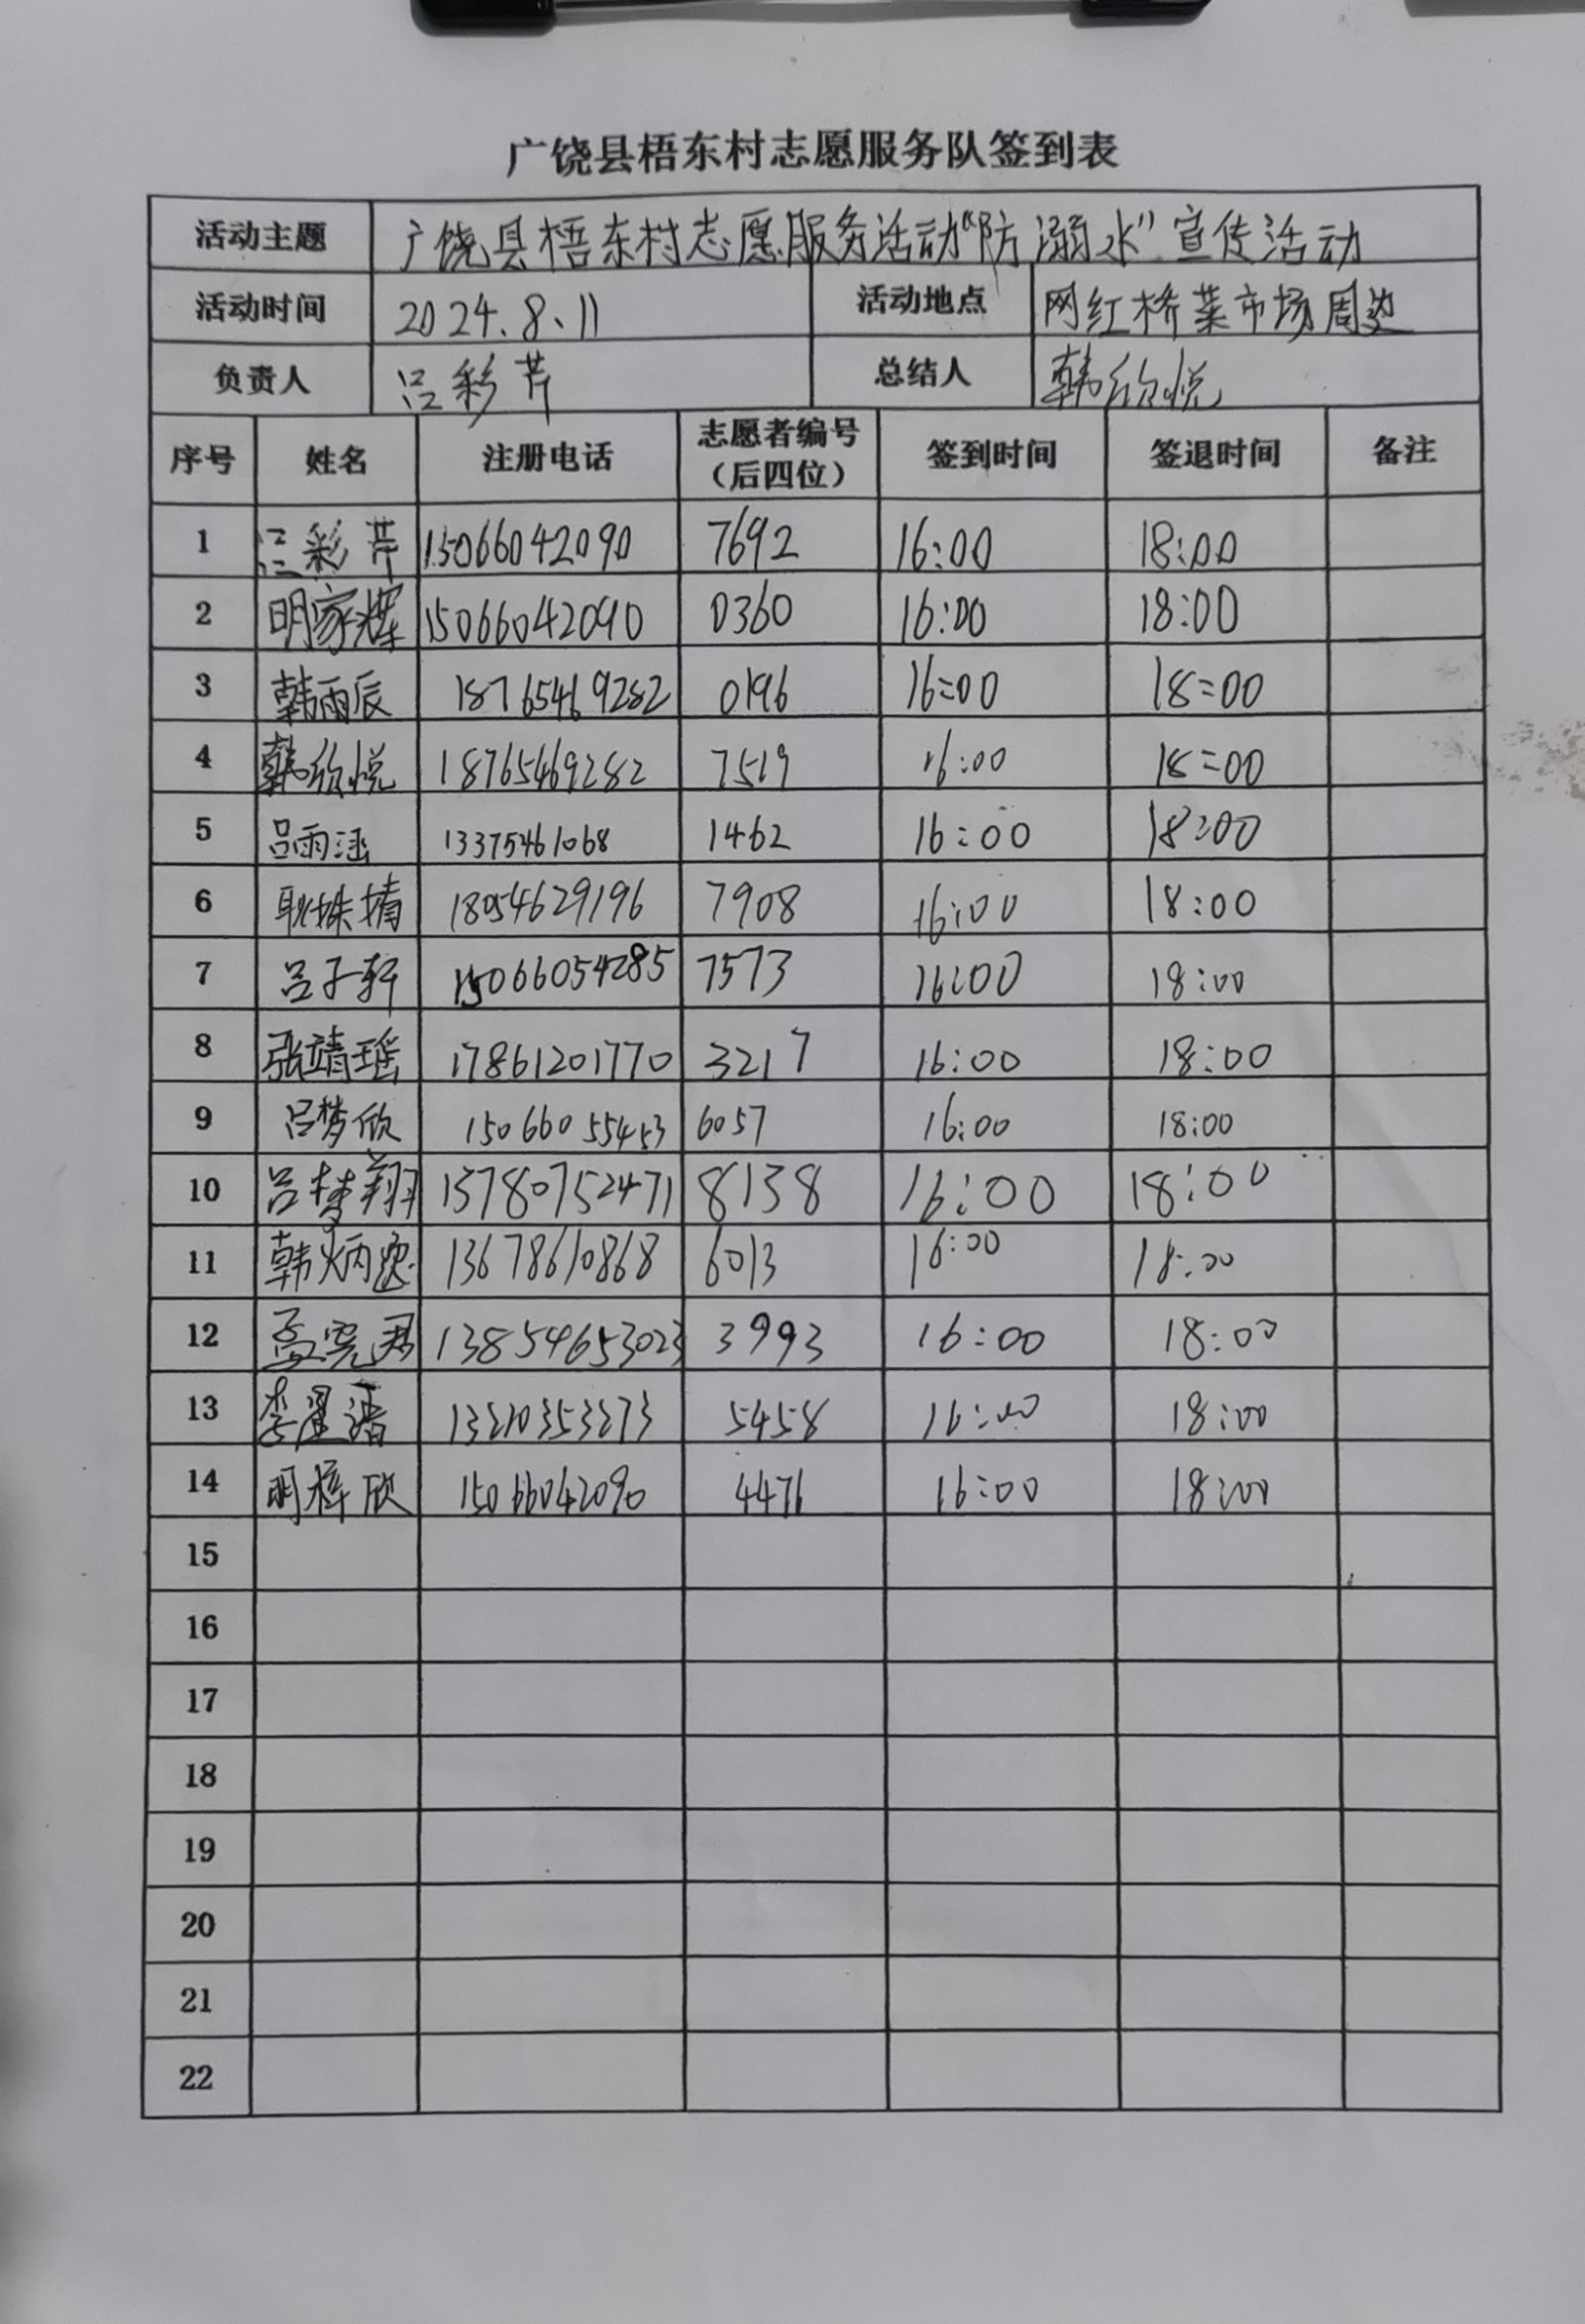 广饶县梧东村志愿服务队签到表
活动主题 广饶县梧东村志愿服务活动“防溺水”宣传活动
活动时间 2024.8、11 活动地点 网红桥菜市场周边
负责人 吕彩芹 总结人 韩欣悦
序号 姓名 注册电话 志愿者编号（后四位） 签到时间 签退时间 备注
1 吕彩芹 15066042090 7692 16:00 18:00
2 明家辉 15066042090 0360 16:00 18:00
3 韩雨辰 18765469282 0196 16=00 18=00
4 韩欣悦 18765469282 7519 16:00 18=00
5 吕雨涵 13375461068 1462 16:00 18:00
6 耿姝婧 18054629196 7908 16:00 18:00
7 吕子轩 15066054285 7573 16:00 18:00
8 张靖瑶 17861201770 3217 16:00 18:00
9 吕梦欣 15066055453 6057 16:00 18:00
10 吕梦翔 13780752471 8138 16:00 18:00
11 韩炳逸 13678610868 6013 16:00 18:00
12 孟宪君 13854653023 3993 16:00 18:00
13 李 5458 16:00 18:00
14 明梓欣 15066042090 4476 16:00 18:00
15
16
17
18
19
20
21
22